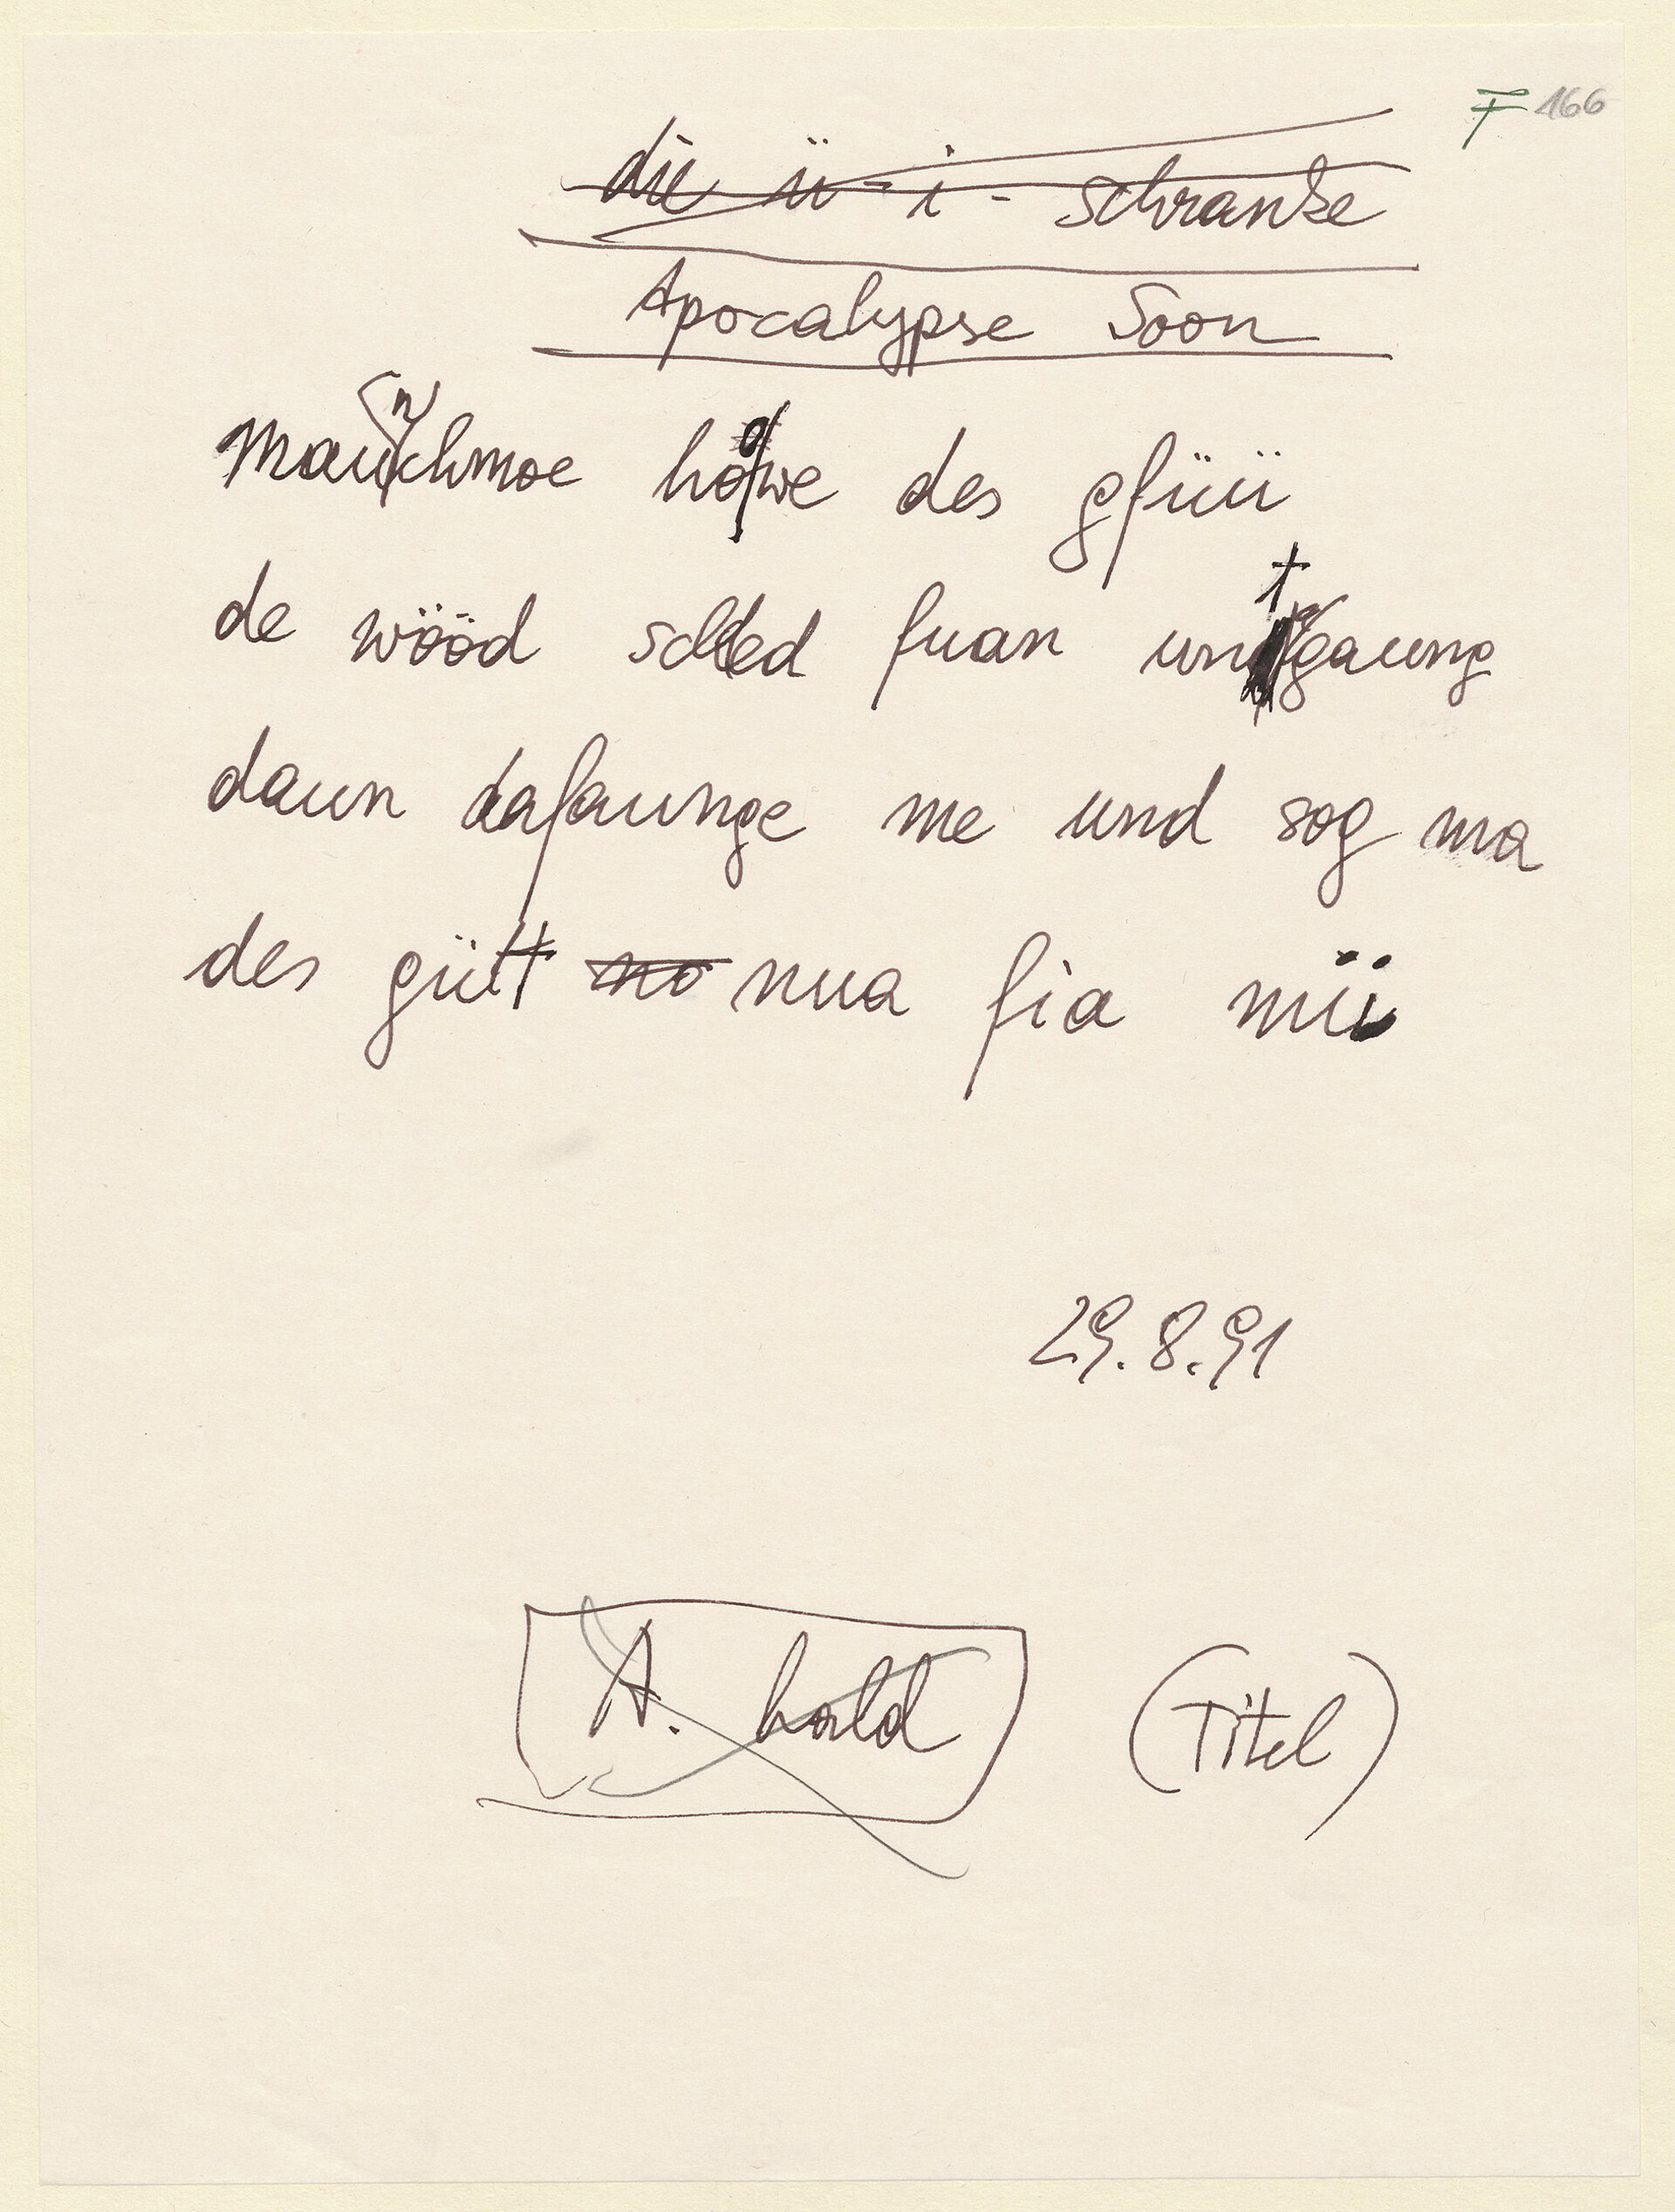 F 166
die ü-i-schranke
Apocalypse Soon
Maunchmoe howe des gfüü
de wööd schded fuan untgaung
daun dafaunge me und sog ma
des gütt no nua fia mii
29.8.91
A. hold (Titel)